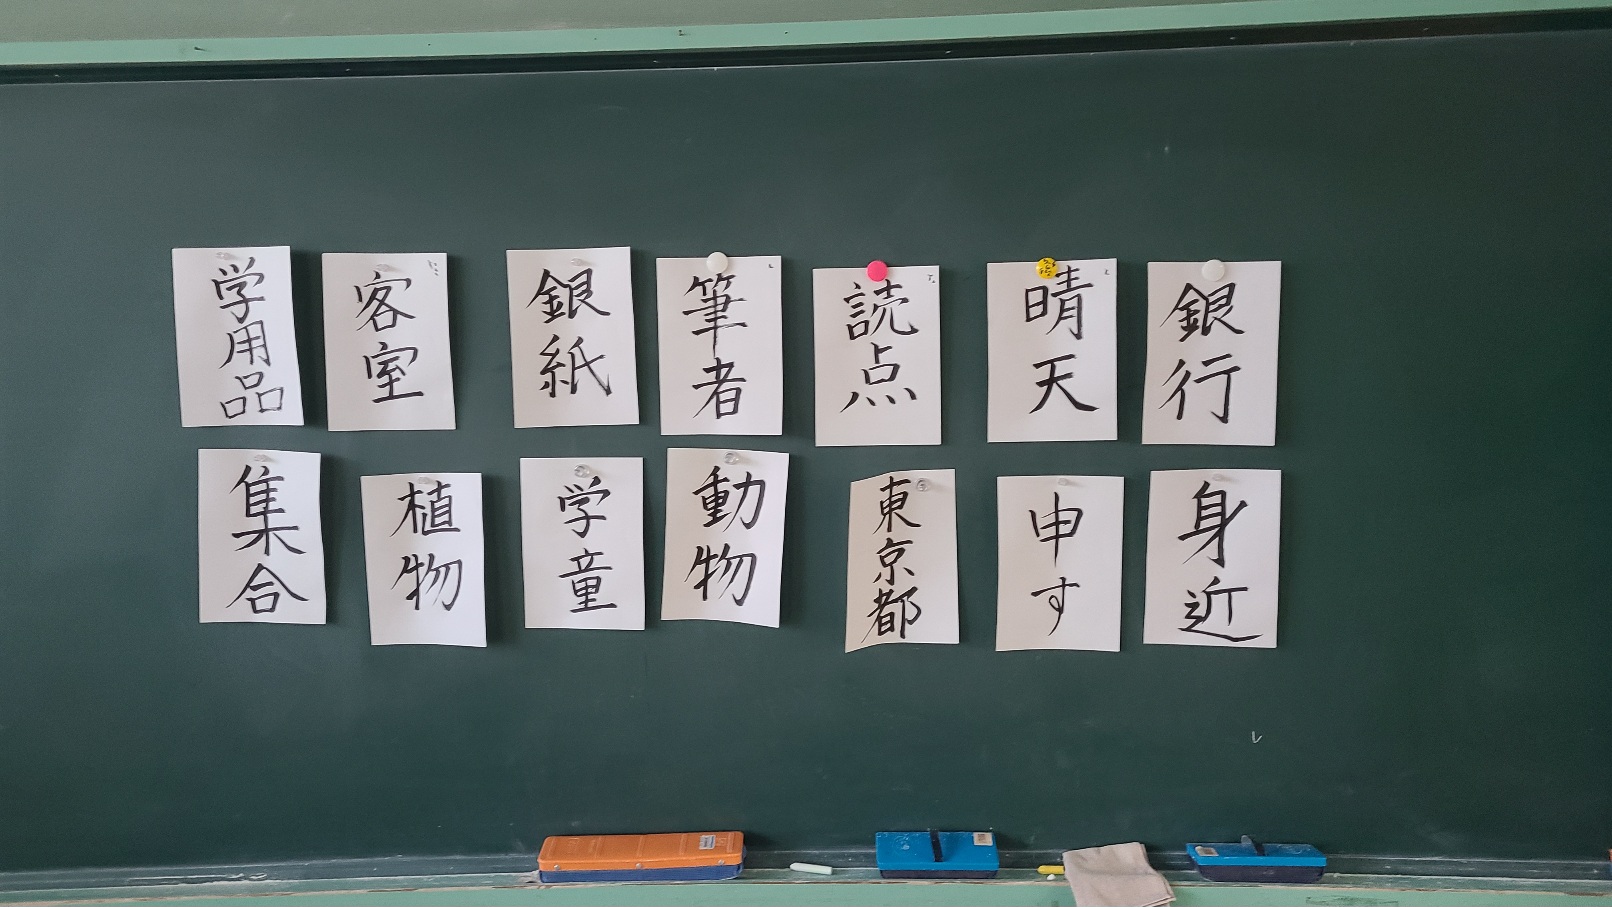 学用品
客室
銀紙
筆者
読点
晴天
銀行
集合
植物
学童
動物
東京都
申す
身近